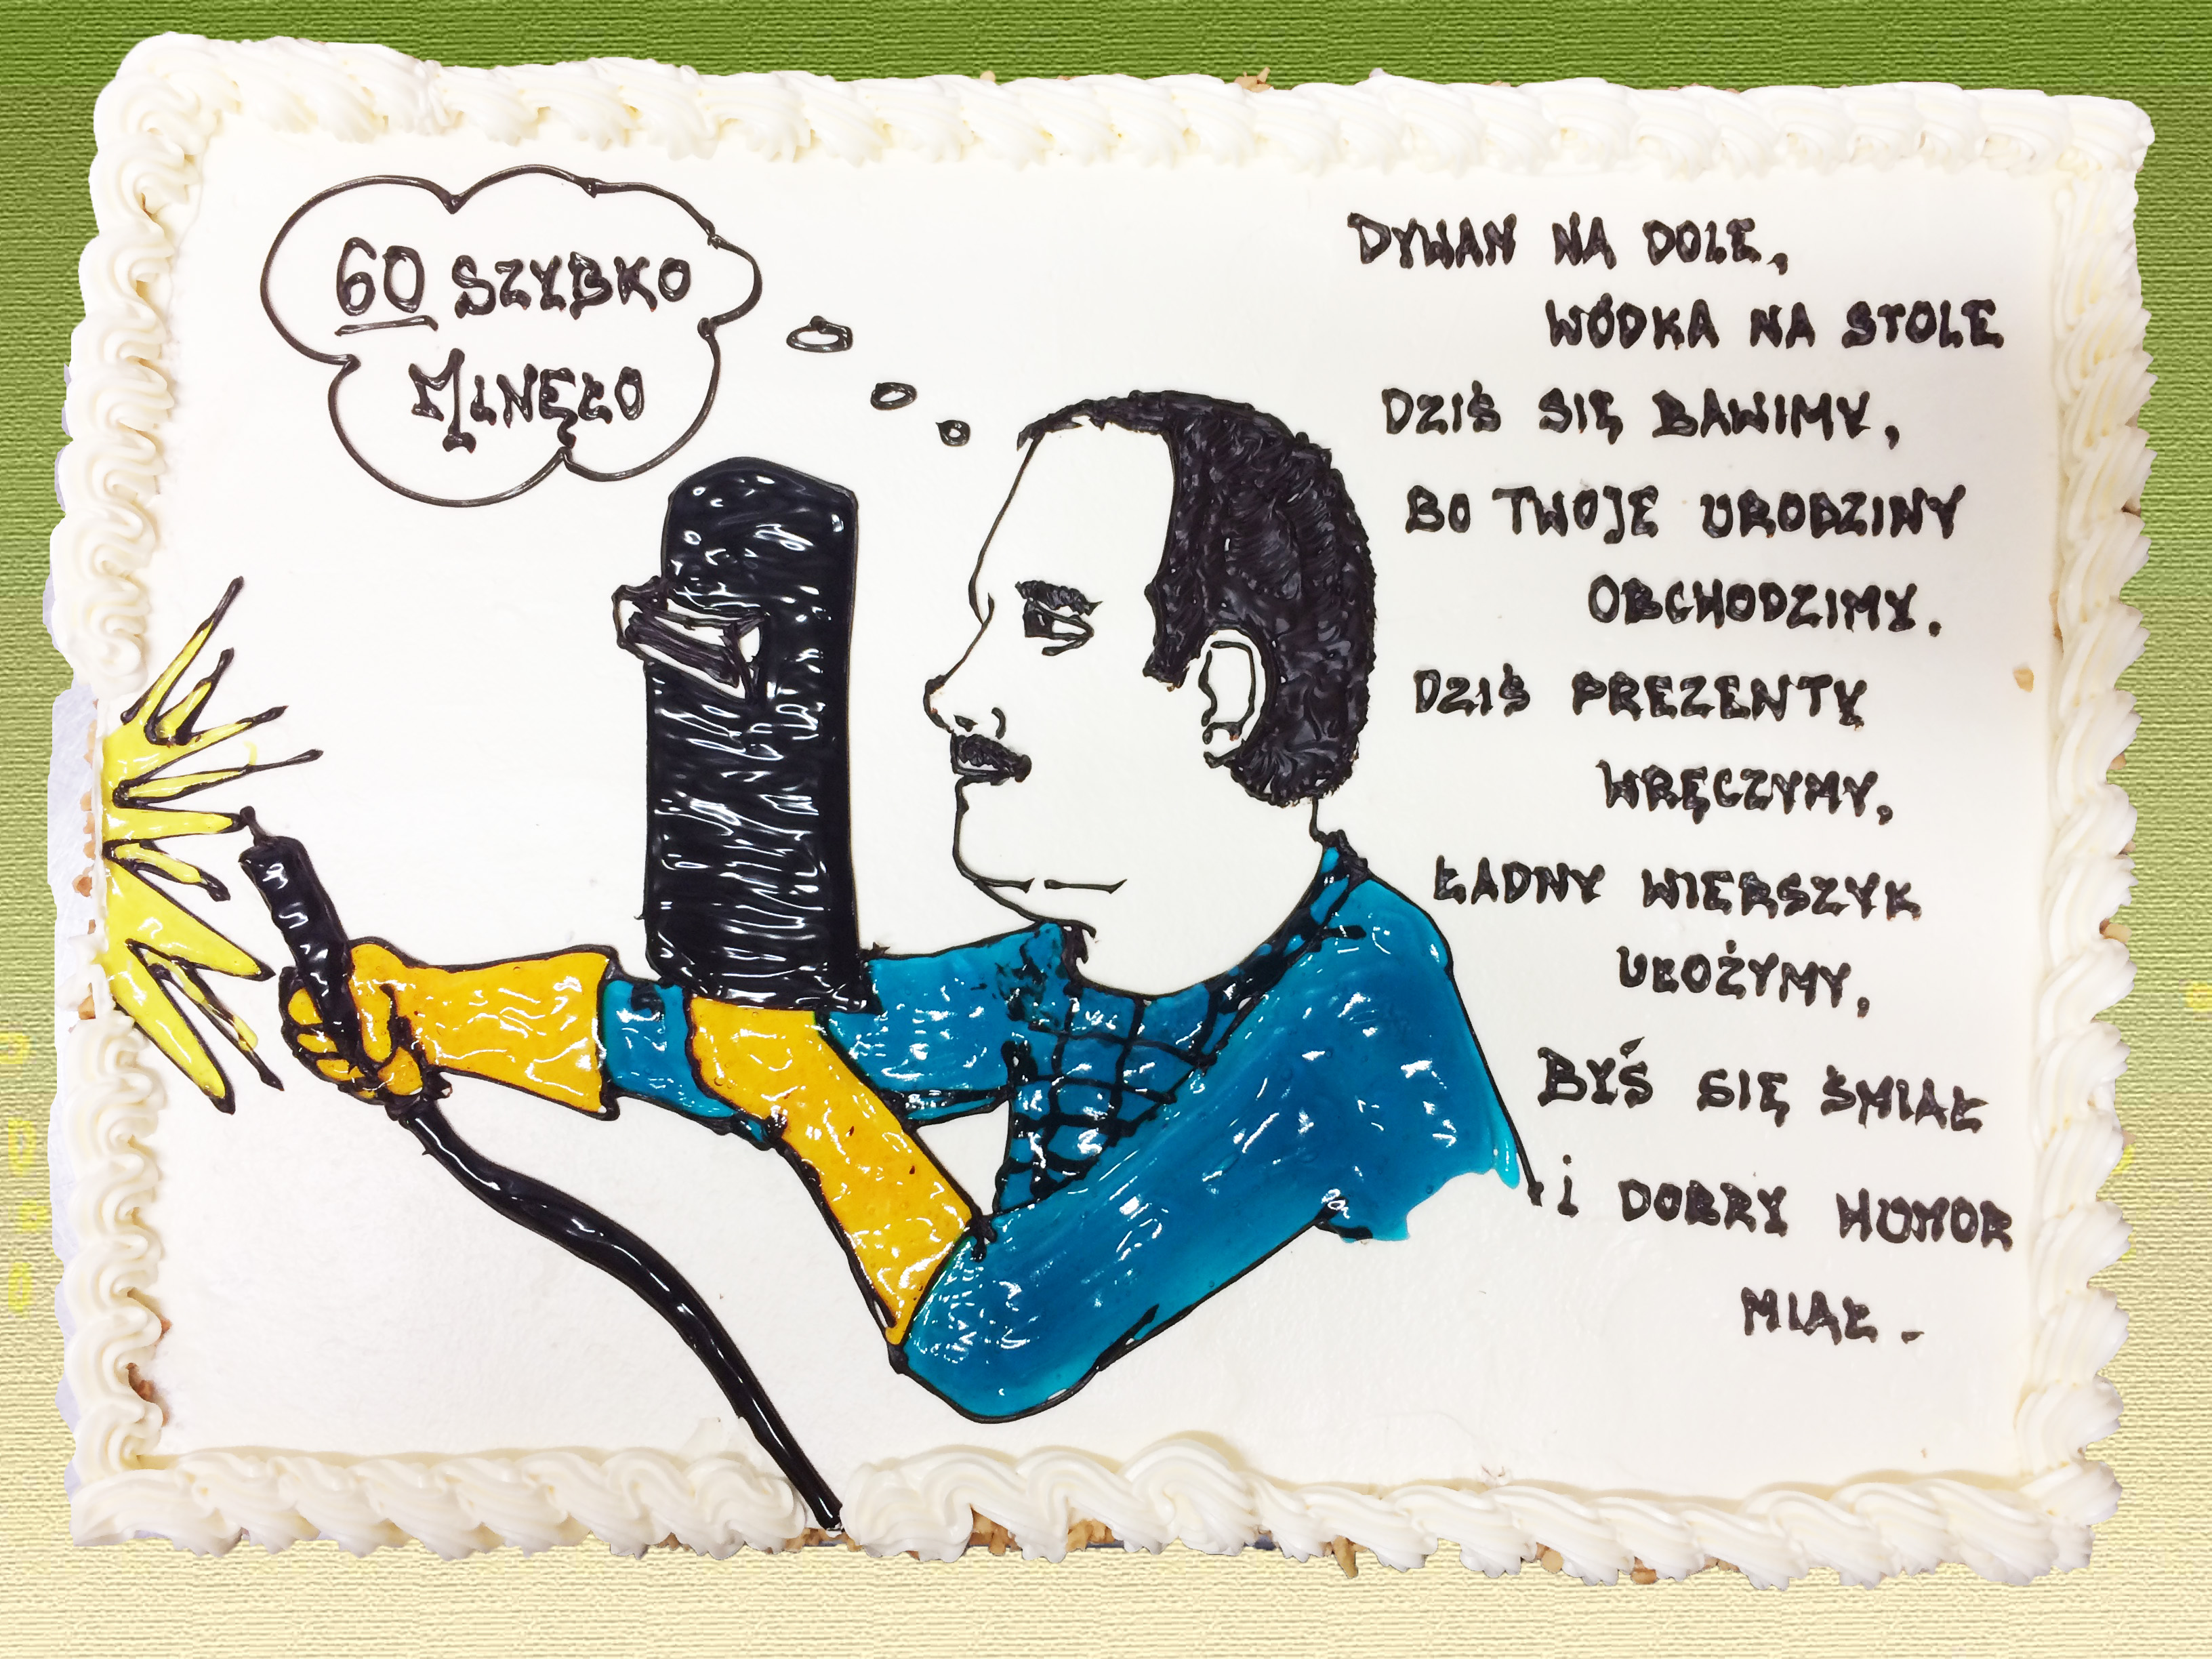 60 SZYBKO
MINĘŁO
DYWAN NA DOLE,
WÓDKA NA STOLE
DZIŚ SIĘ BAWIMY,
BO TWOJE URODZINY
OBCHODZIMY.
DZIŚ PREZENTY
WRĘCZYMY,
ŁADNY WIERSZYK
UŁOŻYMY,
BYŚ SIĘ ŚMIAŁ
i DOBRY HUMOR
MIAŁ.